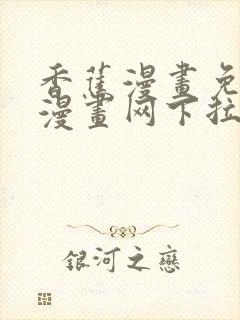 香蕉漫畫免
漫畫网下拉
銀河之戀